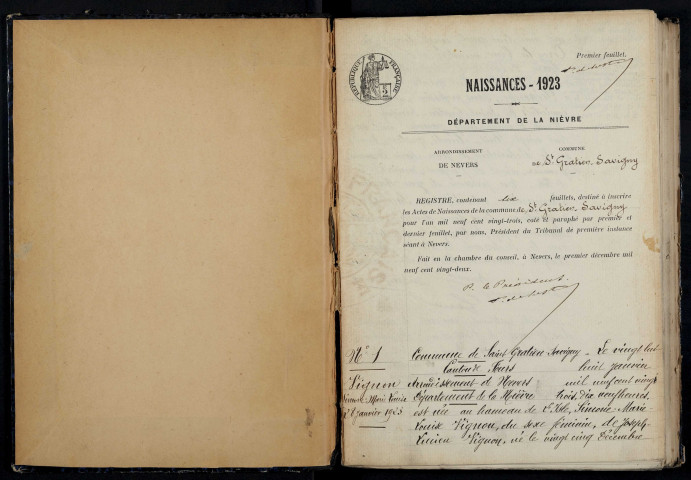 Premier feuillet.
RÉPUBLIQUE FRANÇAISE
NAISSANCES - 1923
DÉPARTEMENT DE LA NIÈVRE
ARRONDISSEMENT
DE NEVERS
COMMUNE
de St Gratien Savigny
REGISTRE, contenant six feuillets, destiné à inscrire
les Actes de Naissances de la commune de St Gratien Savigny
pour l'an mil neuf cent vingt-trois, coté et paraphé par premier et
dernier feuillet, par nous, Président du Tribunal de première instance
séant à Nevers.
Fait en la chambre du conseil, à Nevers, le premier décembre mil
neuf cent vingt-deux.
P. le Président
N° 1
Vignon
Simone Marie Louise
janvier 1923
Commune de Saint Gratien Savigny - Le vingt huit
Canton de Fours huit janvier
Arrondissement de Nevers mil neuf cent vingt
Département de la Nièvre trois, dix heures,
est née au hameau de Simone Marie
Louise Vignon, du sexe féminin, de Joseph
Lucien Vignon, né le vingt cinq Décembre